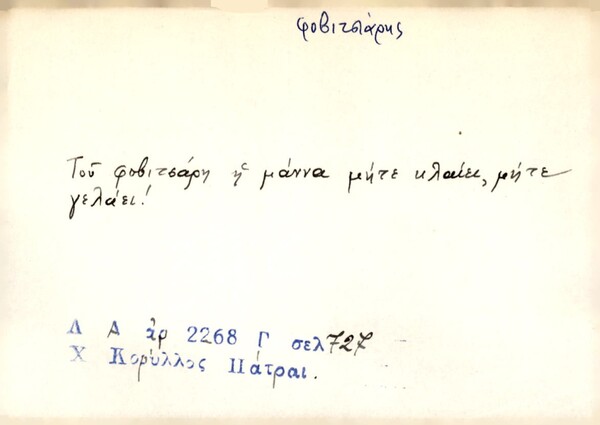 φοβιτσιάρης
Τοῦ φοβιτσάρη ἡ μάννα μήτε κλαίει, μήτε
γελάει!
Λ Α ἀρ 2268 Γ σελ 727
Χ Κορύλλος Πάτραι.